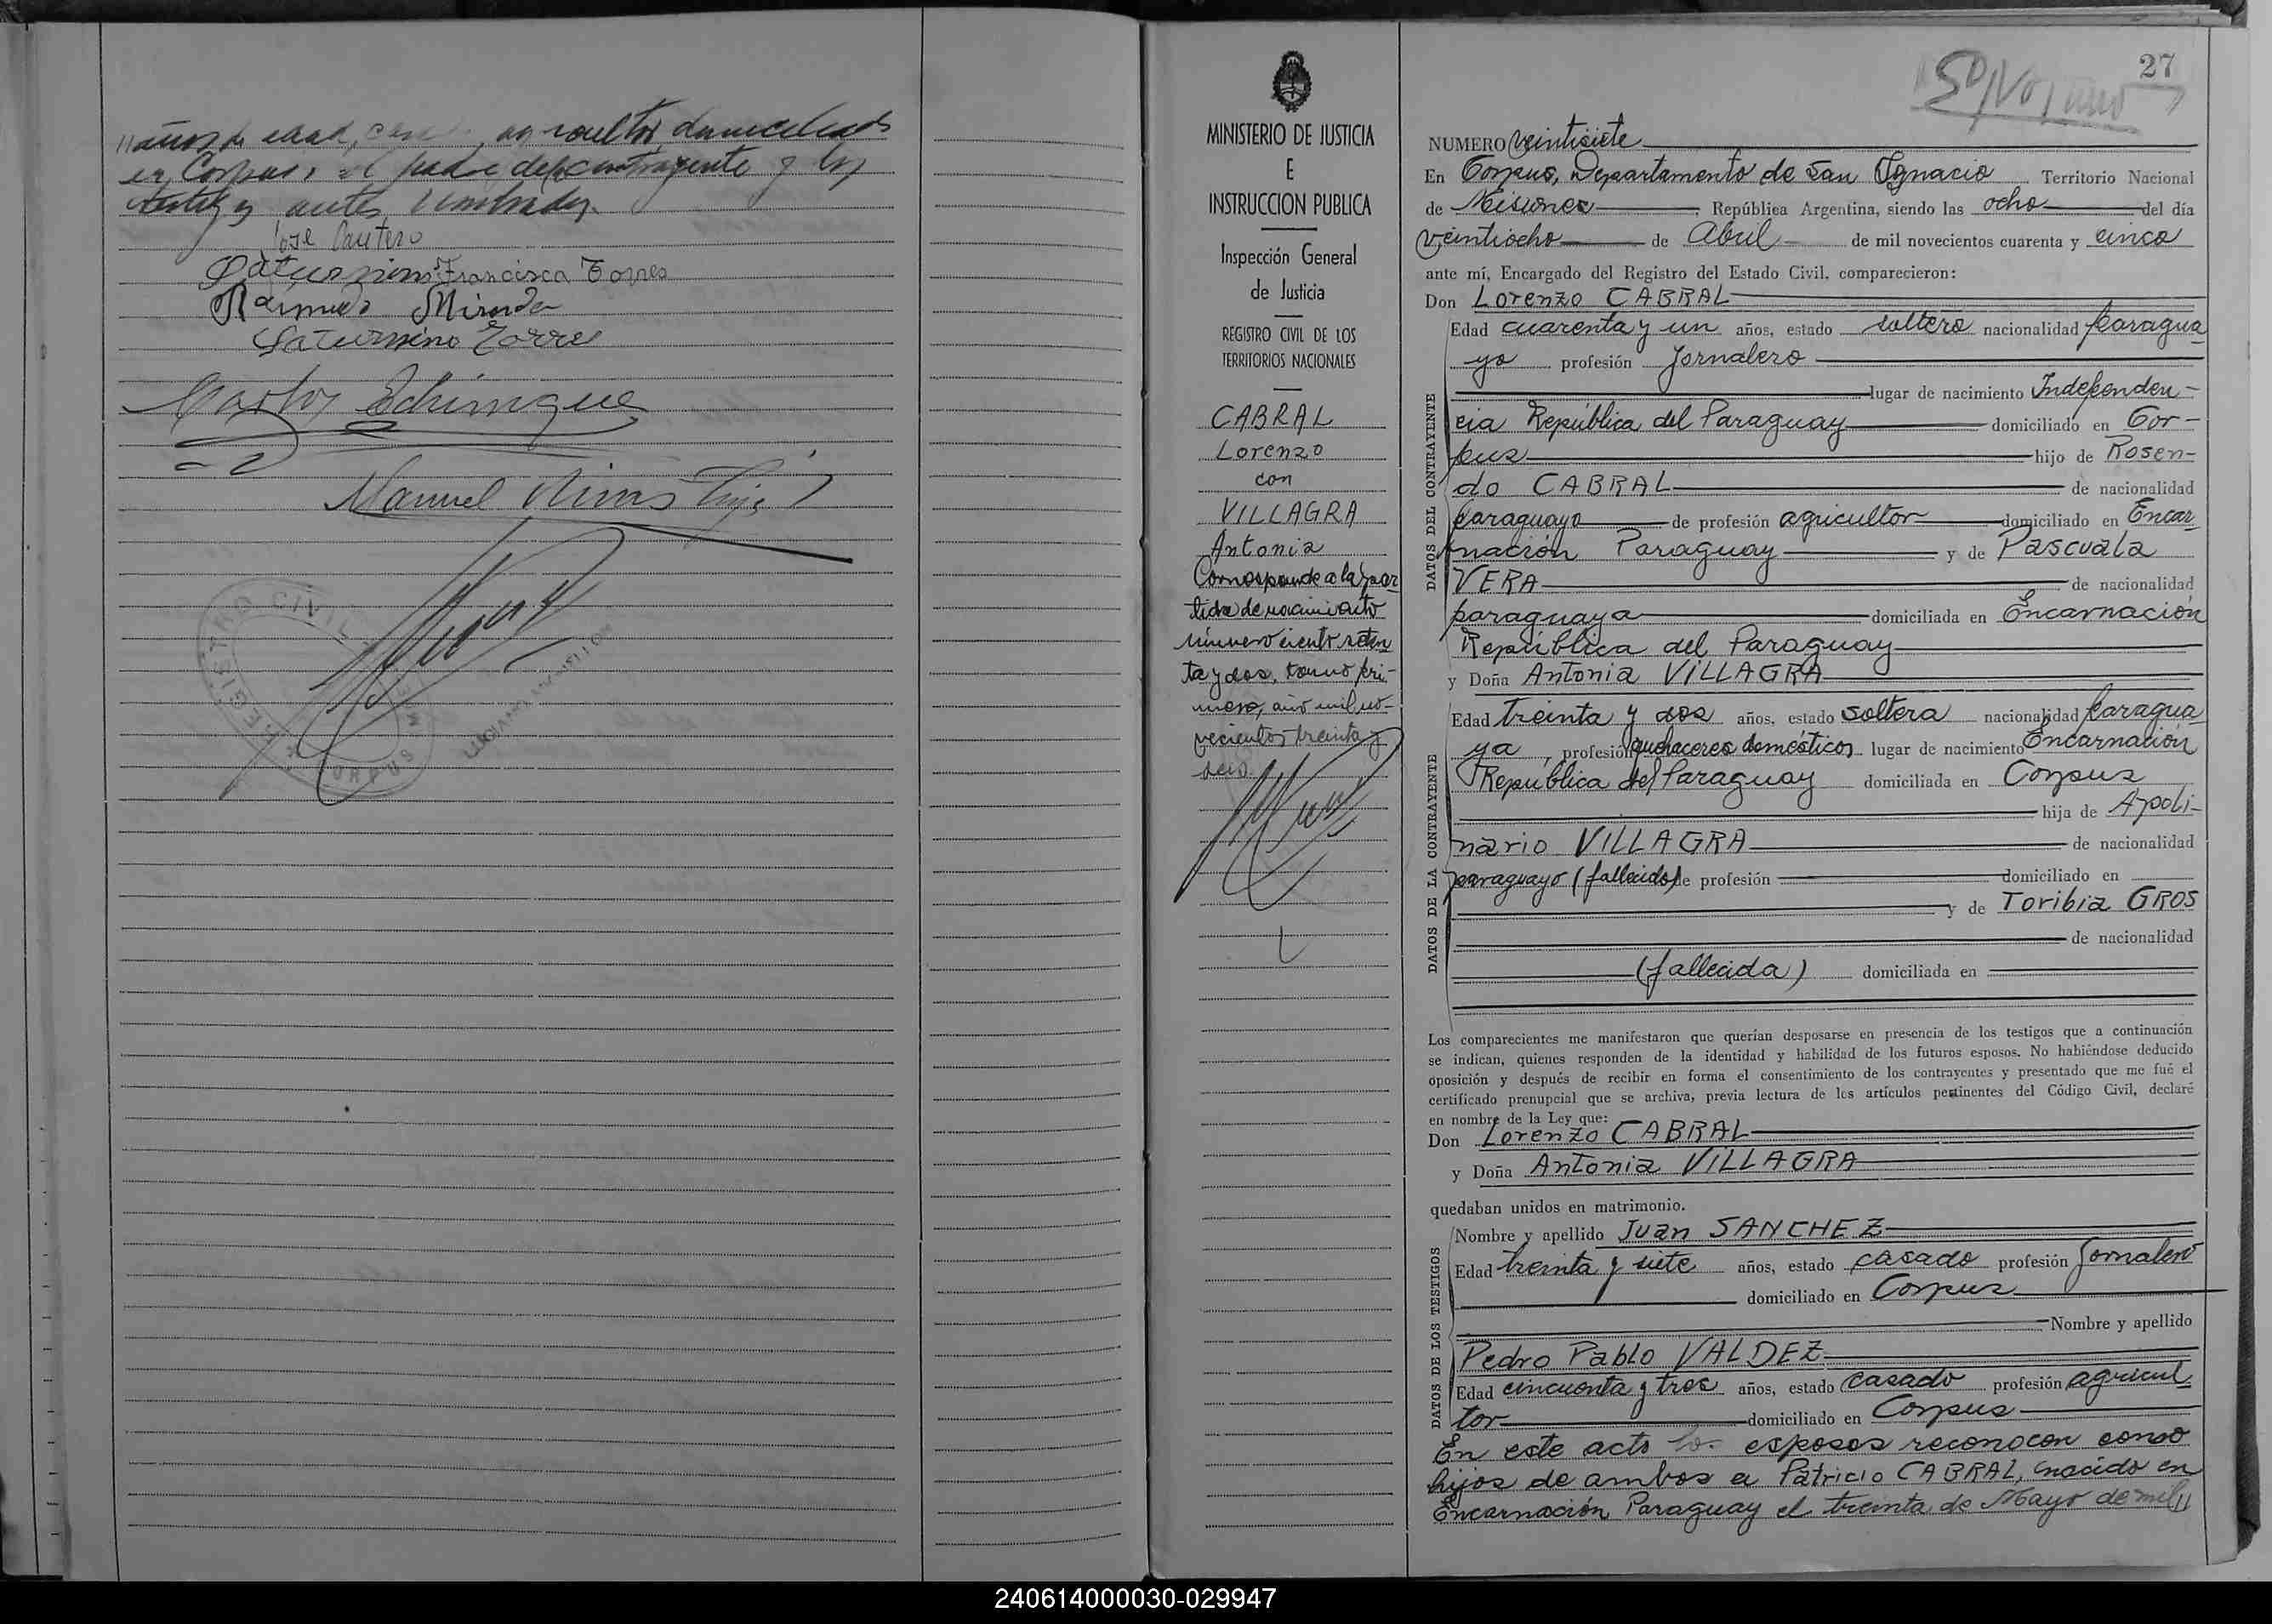 años de edad, agricultor, domiciliado
en Corpus, el padre de la contrayente y los
testigos antes nombrados.
José Cantero
Saturnino Francisca Torres
Raimundo Miranda
Saturnino Torres
Carlos Echimague
Manuel Rivas Hijo
REGISTRO CIVIL
CORPUS
27
MINISTERIO DE JUSTICIA
E
INSTRUCCION PUBLICA
Inspección General
de Justicia
REGISTRO CIVIL DE LOS
TERRITORIOS NACIONALES
CABRAL
Lorenzo
con
VILLAGRA
Antonia
Corresponde a la par-
tida de nacimiento
número ciento seten
ta y dos, tomo pri-
mero, año mil no-
vecientos treinta y
seis.
NUMERO veintisiete
En Corpus, Departamento de San Ignacio Territorio Nacional
de Misiones, República Argentina, siendo las ocho del día
veintiocho de Abril de mil novecientos cuarenta y cinco
ante mí, Encargado del Registro del Estado Civil, comparecieron:
Don Lorenzo CABRAL
DATOS DEL CONTRAYENTE
Edad cuarenta y un años, estado soltero nacionalidad paragua
yo profesión Jornalero
lugar de nacimiento Independen-
cia República del Paraguay domiciliado en Cor-
pus hijo de Rosen-
do CABRAL de nacionalidad
paraguayo de profesión agricultor domiciliado en Encar
nación Paraguay y de Pascuala
VERA de nacionalidad
paraguaya domiciliada en Encarnación
República del Paraguay
y Doña Antonia VILLAGRA
DATOS DE LA CONTRAYENTE
Edad treinta y dos años, estado soltera nacionalidad paragua
ya, profesión quehaceres domésticos lugar de nacimiento Encarnación
República del Paraguay domiciliada en Corpus
hija de Apoli-
nario VILLAGRA de nacionalidad
paraguayo (fallecido) de profesión domiciliado en
y de Toribia GROS
de nacionalidad
(fallecida) domiciliada en
Los comparecientes me manifestaron que querían desposarse en presencia de los testigos que a continuación
se indican, quienes responden de la identidad y habilidad de los futuros esposos. No habiéndose deducido
oposición y después de recibir en forma el consentimiento de los contrayentes y presentado que me fué el
certificado prenupcial que se archiva, previa lectura de los artículos pertinentes del Código Civil, declaré
en nombre de la Ley que:
Don Lorenzo CABRAL
y Doña Antonia VILLAGRA
quedaban unidos en matrimonio.
DATOS DE LOS TESTIGOS
Nombre y apellido Juan SANCHEZ
Edad treinta y siete años, estado casado profesión Jornalero
domiciliado en Corpus
Nombre y apellido
Pedro Pablo VALDEZ
Edad cincuenta y tres años, estado casado profesión agricul
tor domiciliado en Corpus
En este acto los esposos reconocen como
hijos de ambos a Patricio CABRAL, nacido en
Encarnación, Paraguay el treinta de Mayo de mil
240614000030-029947